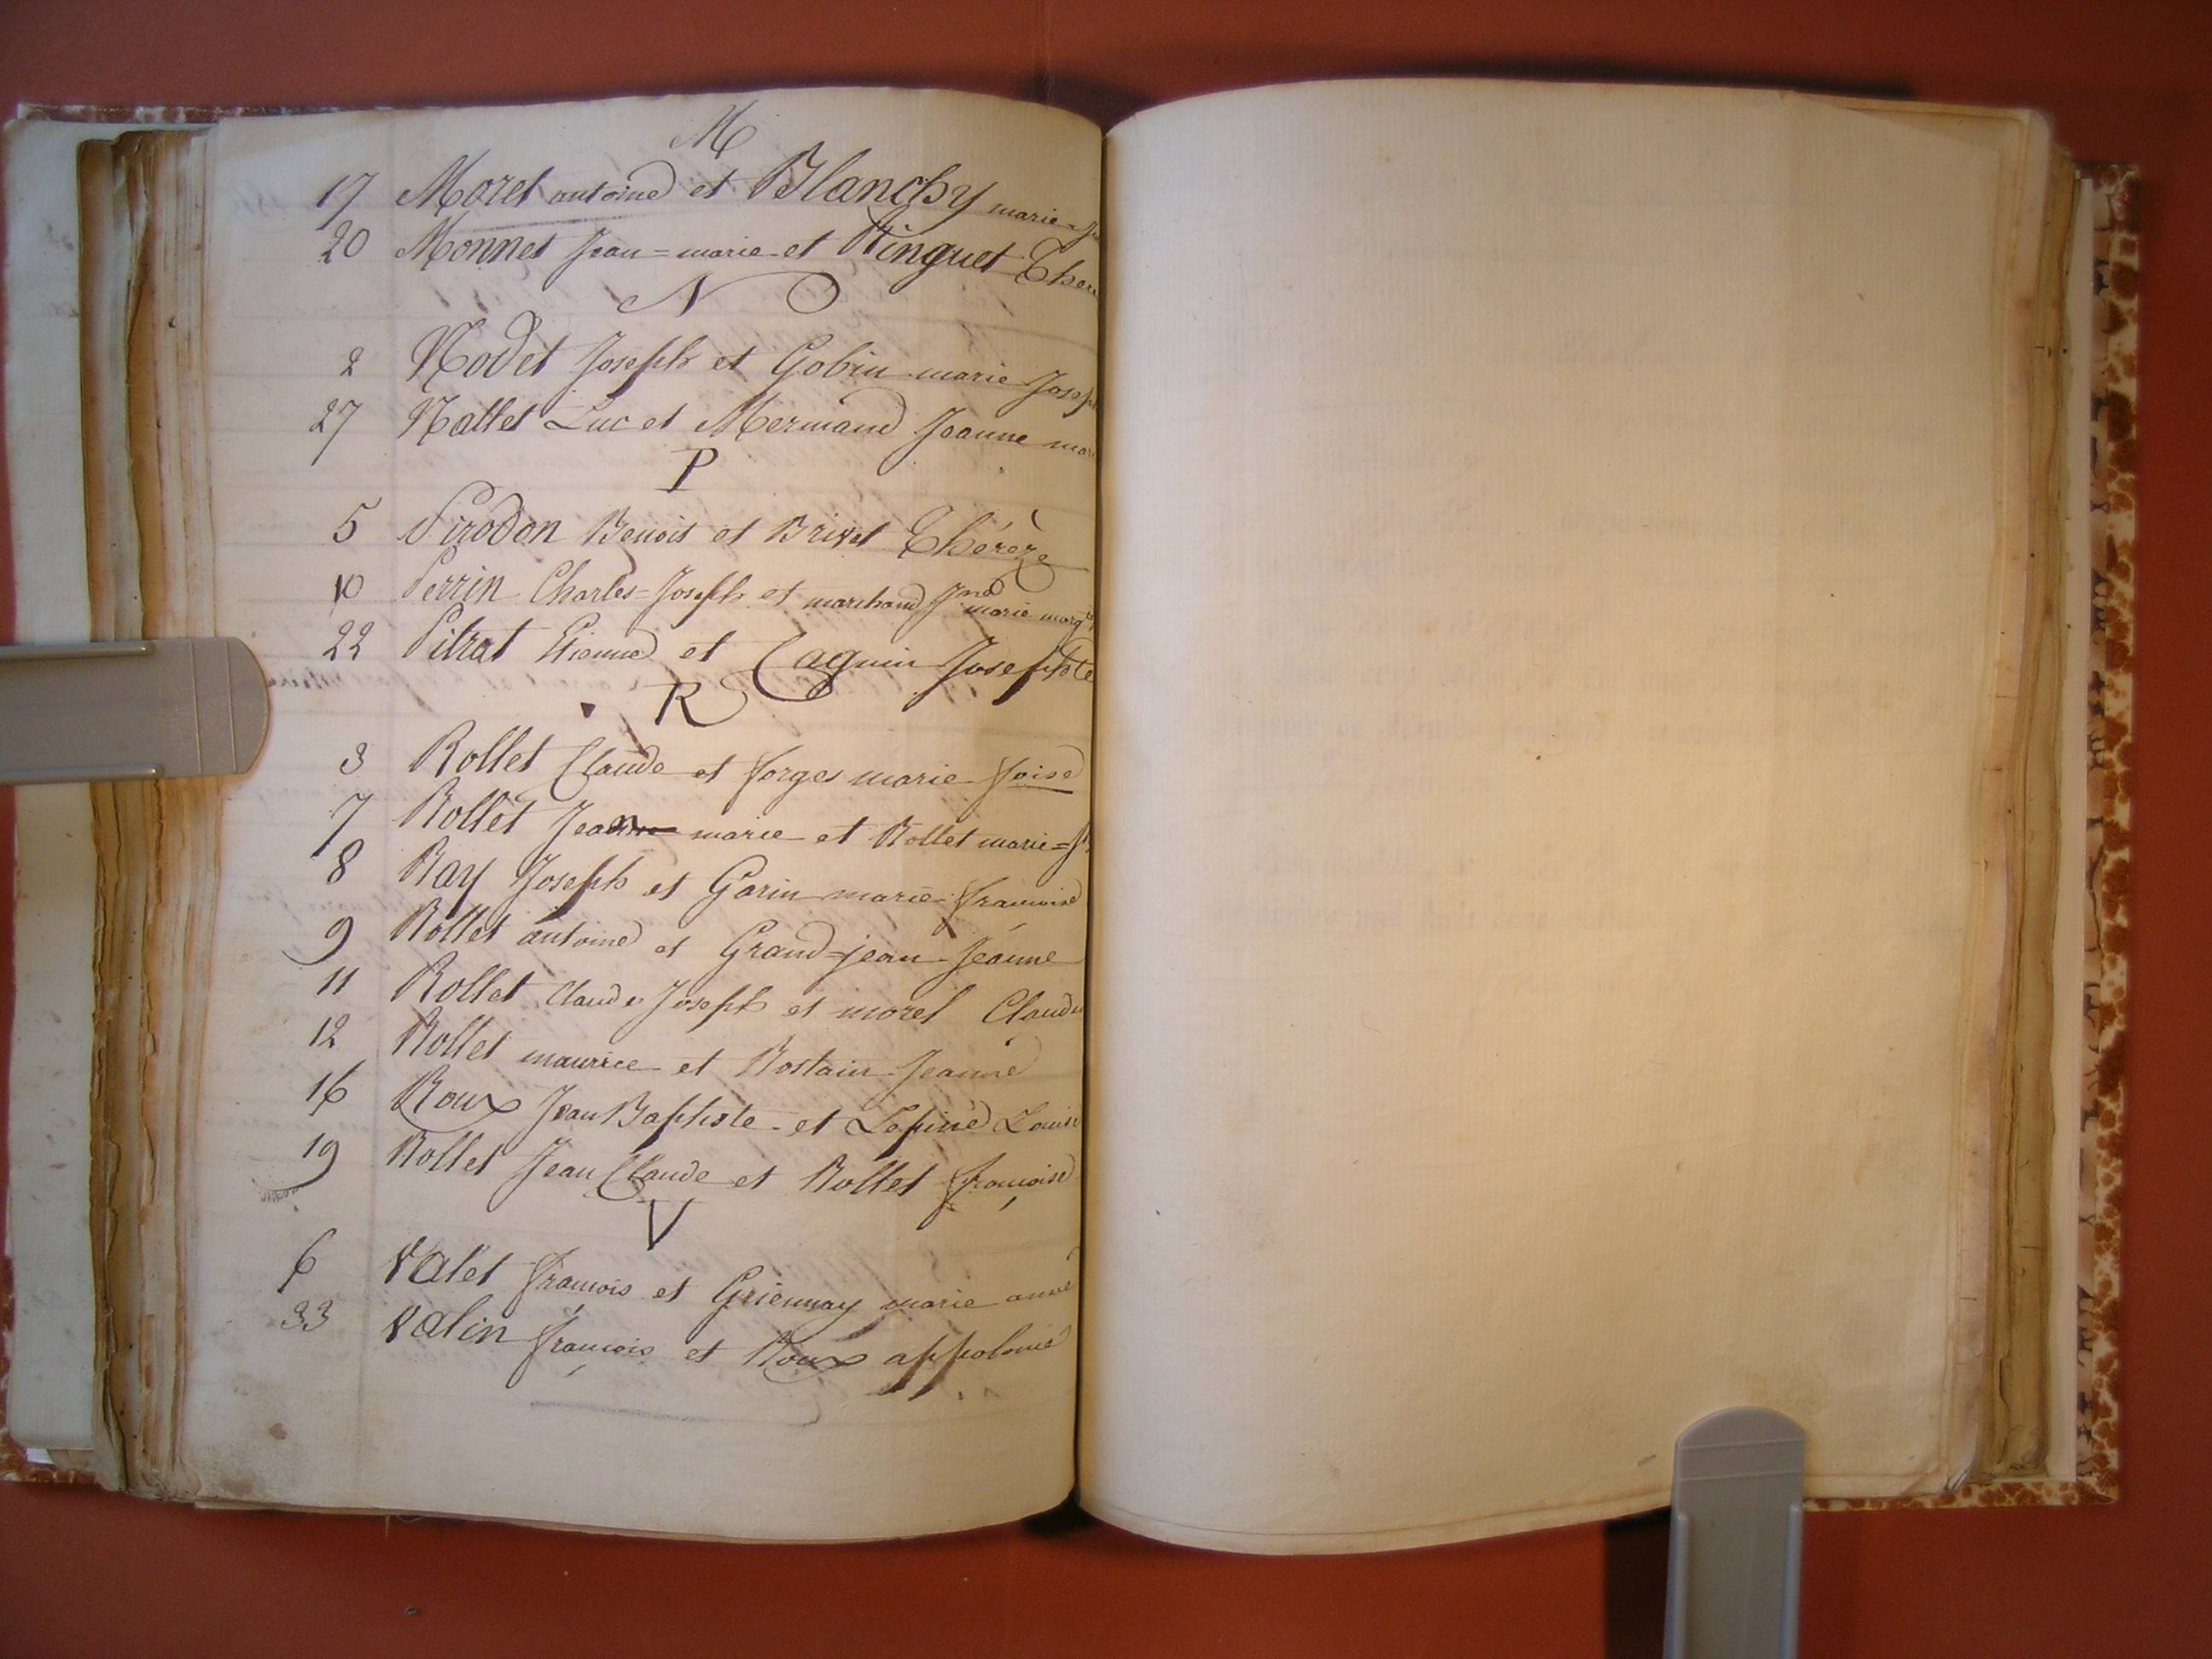 M
17 Morel antoine et Blanchy marie
20 Monnet Jean=marie et Ringuet
N
2 Nodet Joseph et Gobin marie Joseph
27 Nallet Luc et Mermand Jeanne
P
5 Pirodon Benoit et Brivet Thérèze
10 Perrin Charles=Joseph et marchand Jne marie
22 Pitrat Etienne et Caguin Josephte
R
3 Rollet Claude et forges marie foise
7 Rollet Jean marie et Rollet marie
8 Ray Joseph et Gorin marie françoise
9 Rollet antoine et Grand-jean Jeanne
11 Rollet Claude Joseph et morel
12 Rollet maurice et Rostain Jeanne
16 Roux Jean Baptiste et Lepine Louise
19 Rollet Jean Claude et Rollet françoise
V
6 valet françois et Griennay marie anne
33 valin françois et Roux appolonie